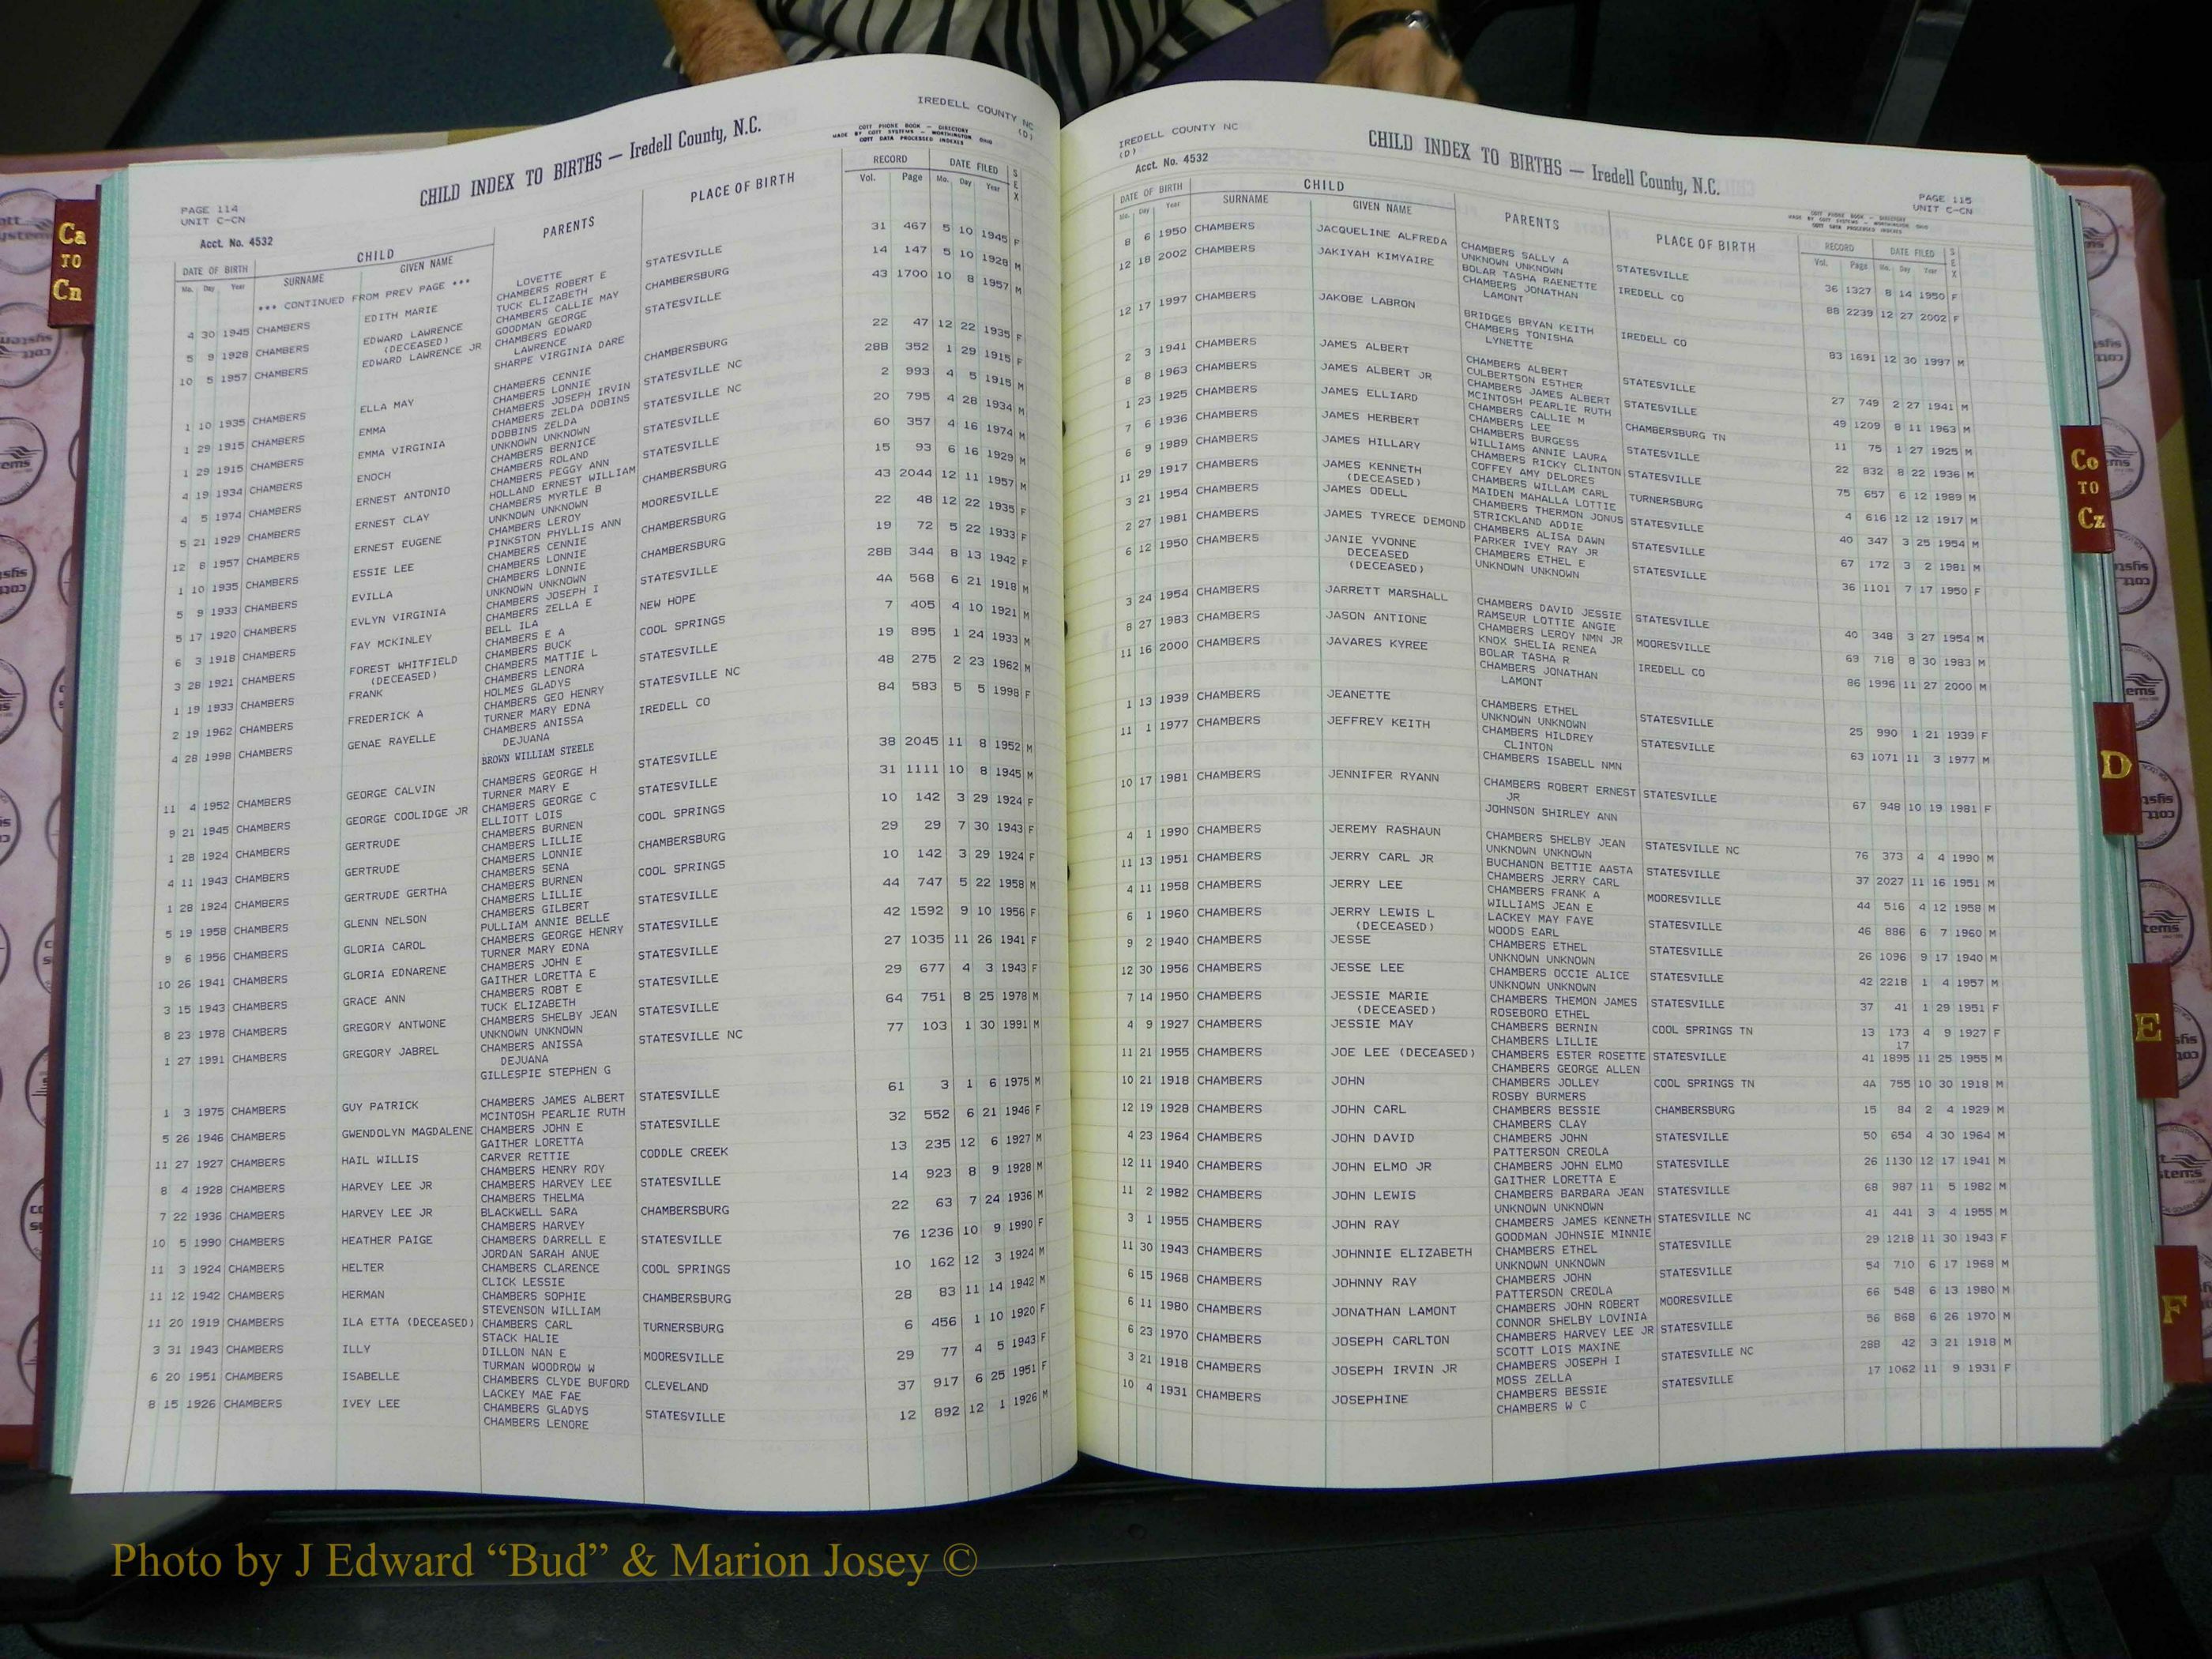 IREDELL COUNTY NC
(D)
CHILD INDEX TO BIRTHS — Iredell County, N.C.
COTT PHONE BOOK — DIRECTORY
MADE BY COTT SYSTEMS — WORTHINGTON OHIO
COTT DATA PROCESSED INDEXES
PAGE 114
UNIT C-CN
Acct. No. 4532
DATE OF BIRTH CHILD PARENTS PLACE OF BIRTH RECORD DATE FILED SEX
Mo. Day Year SURNAME GIVEN NAME Vol. Page Mo. Day Year
*** CONTINUED FROM PREV PAGE ***
LOVETTE
4 30 1945 CHAMBERS EDITH MARIE CHAMBERS ROBERT E STATESVILLE 31 467 5 10 1945 F
TUCK ELIZABETH
5 9 1928 CHAMBERS EDWARD LAWRENCE CHAMBERS CALLIE MAY CHAMBERSBURG 14 147 5 10 1928 M
(DECEASED) GOODMAN GEORGE
10 5 1957 CHAMBERS EDWARD LAWRENCE JR CHAMBERS EDWARD STATESVILLE 43 1700 10 8 1957 M
LAWRENCE
SHARPE VIRGINIA DARE
1 10 1935 CHAMBERS ELLA MAY CHAMBERS CENNIE CHAMBERSBURG 22 47 12 22 1935 F
CHAMBERS LONNIE
1 29 1915 CHAMBERS EMMA CHAMBERS JOSEPH IRVIN STATESVILLE NC 28B 352 1 29 1915 F
CHAMBERS ZELDA DOBINS
1 29 1915 CHAMBERS EMMA VIRGINIA DOBBINS ZELDA STATESVILLE NC 2 993 4 5 1915 M
UNKNOWN UNKNOWN
4 19 1934 CHAMBERS ENOCH CHAMBERS BERNICE STATESVILLE 20 795 4 28 1934 M
CHAMBERS ROLAND
4 5 1974 CHAMBERS ERNEST ANTONIO CHAMBERS PEGGY ANN STATESVILLE 60 357 4 16 1974 M
HOLLAND ERNEST WILLIAM
5 21 1929 CHAMBERS ERNEST CLAY CHAMBERS MYRTLE B CHAMBERSBURG 15 93 6 16 1929 M
UNKNOWN UNKNOWN
12 8 1957 CHAMBERS ERNEST EUGENE CHAMBERS LEROY MOORESVILLE 43 2044 12 11 1957 M
PINKSTON PHYLLIS ANN
1 10 1935 CHAMBERS ESSIE LEE CHAMBERS CENNIE CHAMBERSBURG 22 48 12 22 1935 F
CHAMBERS LONNIE
5 9 1933 CHAMBERS EVILLA CHAMBERS LONNIE CHAMBERSBURG 19 72 5 22 1933 F
UNKNOWN UNKNOWN
5 17 1920 CHAMBERS EVLYN VIRGINIA CHAMBERS JOSEPH I STATESVILLE 28B 344 8 13 1942 F
CHAMBERS ZELLA E
6 3 1918 CHAMBERS FAY MCKINLEY BELL ILA NEW HOPE 4A 568 6 21 1918 M
CHAMBERS E A
3 28 1921 CHAMBERS FOREST WHITFIELD CHAMBERS BUCK COOL SPRINGS 7 405 4 10 1921 M
(DECEASED) CHAMBERS MATTIE L
1 19 1933 CHAMBERS FRANK CHAMBERS LENORA STATESVILLE 19 895 1 24 1933 M
HOLMES GLADYS
2 19 1962 CHAMBERS FREDERICK A CHAMBERS GEO HENRY STATESVILLE NC 48 275 2 23 1962 M
TURNER MARY EDNA
4 28 1998 CHAMBERS GENAE RAYELLE CHAMBERS ANISSA IREDELL CO 84 583 5 5 1998 F
DEJUANA
BROWN WILLIAM STEELE
11 4 1952 CHAMBERS GEORGE CALVIN CHAMBERS GEORGE H STATESVILLE 38 2045 11 8 1952 M
TURNER MARY E
9 21 1945 CHAMBERS GEORGE COOLIDGE JR CHAMBERS GEORGE C STATESVILLE 31 1111 10 8 1945 M
ELLIOTT LOIS
1 28 1924 CHAMBERS GERTRUDE CHAMBERS BURNEN COOL SPRINGS 10 142 3 29 1924 F
CHAMBERS LILLIE
4 11 1943 CHAMBERS GERTRUDE CHAMBERS LONNIE CHAMBERSBURG 29 29 7 30 1943 F
CHAMBERS SENA
1 28 1924 CHAMBERS GERTRUDE GERTHA CHAMBERS BURNEN COOL SPRINGS 10 142 3 29 1924 F
CHAMBERS LILLIE
5 19 1958 CHAMBERS GLENN NELSON CHAMBERS GILBERT STATESVILLE 44 747 5 22 1958 M
PULLIAM ANNIE BELLE
9 6 1956 CHAMBERS GLORIA CAROL CHAMBERS GEORGE HENRY STATESVILLE 42 1592 9 10 1956 F
TURNER MARY EDNA
10 26 1941 CHAMBERS GLORIA EDNARENE CHAMBERS JOHN E STATESVILLE 27 1035 11 26 1941 F
GAITHER LORETTA E
3 15 1943 CHAMBERS GRACE ANN CHAMBERS ROBT E STATESVILLE 29 677 4 3 1943 F
TUCK ELIZABETH
8 23 1978 CHAMBERS GREGORY ANTWONE CHAMBERS SHELBY JEAN STATESVILLE 64 751 8 25 1978 M
UNKNOWN UNKNOWN
1 27 1991 CHAMBERS GREGORY JABREL CHAMBERS ANISSA STATESVILLE NC 77 103 1 30 1991 M
DEJUANA
GILLESPIE STEPHEN G
1 3 1975 CHAMBERS GUY PATRICK CHAMBERS JAMES ALBERT STATESVILLE 61 3 1 6 1975 M
MCINTOSH PEARLIE RUTH
5 26 1946 CHAMBERS GWENDOLYN MAGDALENE CHAMBERS JOHN E STATESVILLE 32 552 6 21 1946 F
GAITHER LORETTA
11 27 1927 CHAMBERS HAIL WILLIS CARVER RETTIE CODDLE CREEK 13 235 12 6 1927 M
CHAMBERS HENRY ROY
8 4 1928 CHAMBERS HARVEY LEE JR CHAMBERS HARVEY LEE STATESVILLE 14 923 8 9 1928 M
CHAMBERS THELMA
7 22 1936 CHAMBERS HARVEY LEE JR BLACKWELL SARA CHAMBERSBURG 22 63 7 24 1936 M
CHAMBERS HARVEY
10 5 1990 CHAMBERS HEATHER PAIGE CHAMBERS DARRELL E STATESVILLE 76 1236 10 9 1990 F
JORDAN SARAH ANUE
11 3 1924 CHAMBERS HELTER CHAMBERS CLARENCE COOL SPRINGS 10 162 12 3 1924 M
CLICK LESSIE
11 12 1942 CHAMBERS HERMAN CHAMBERS SOPHIE CHAMBERSBURG 28 83 11 14 1942 M
STEVENSON WILLIAM
11 20 1919 CHAMBERS ILA ETTA (DECEASED) CHAMBERS CARL TURNERSBURG 6 456 1 10 1920 F
STACK HALIE
3 31 1943 CHAMBERS ILLY DILLON NAN E MOORESVILLE 29 77 4 5 1943 F
TURMAN WOODROW W
6 20 1951 CHAMBERS ISABELLE CHAMBERS CLYDE BUFORD CLEVELAND 37 917 6 25 1951 F
LACKEY MAE FAE
8 15 1926 CHAMBERS IVEY LEE CHAMBERS GLADYS STATESVILLE 12 892 12 1 1926 M
CHAMBERS LENORE
IREDELL COUNTY NC
(D)
Acct. No. 4532
CHILD INDEX TO BIRTHS — Iredell County, N.C.
PAGE 115
UNIT C-CN
COTT PHONE BOOK — DIRECTORY
MADE BY COTT SYSTEMS — WORTHINGTON OHIO
COTT DATA PROCESSED INDEXES
DATE OF BIRTH CHILD PARENTS PLACE OF BIRTH RECORD DATE FILED SEX
Mo. Day Year SURNAME GIVEN NAME Vol. Page Mo. Day Year
8 6 1950 CHAMBERS JACQUELINE ALFREDA CHAMBERS SALLY A STATESVILLE 36 1327 8 14 1950 F
UNKNOWN UNKNOWN
12 18 2002 CHAMBERS JAKIYAH KIMYAIRE BOLAR TASHA RAENETTE IREDELL CO 88 2239 12 27 2002 F
CHAMBERS JONATHAN
LAMONT
12 17 1997 CHAMBERS JAKOBE LABRON BRIDGES BRYAN KEITH IREDELL CO 83 1691 12 30 1997 M
CHAMBERS TONISHA
LYNETTE
2 3 1941 CHAMBERS JAMES ALBERT CHAMBERS ALBERT STATESVILLE 27 749 2 27 1941 M
CULBERTSON ESTHER
8 8 1963 CHAMBERS JAMES ALBERT JR CHAMBERS JAMES ALBERT STATESVILLE 49 1209 8 11 1963 M
MCINTOSH PEARLIE RUTH
1 23 1925 CHAMBERS JAMES ELLIARD CHAMBERS CALLIE M CHAMBERSBURG TN 11 75 1 27 1925 M
CHAMBERS LEE
7 6 1936 CHAMBERS JAMES HERBERT CHAMBERS BURGESS STATESVILLE 22 832 8 22 1936 M
WILLIAMS ANNIE LAURA
6 9 1989 CHAMBERS JAMES HILLARY CHAMBERS RICKY CLINTON STATESVILLE 75 657 6 12 1989 M
COFFEY AMY DELORES
11 29 1917 CHAMBERS JAMES KENNETH CHAMBERS WILLAM CARL TURNERSBURG 4 616 12 12 1917 M
(DECEASED) MAIDEN MAHALLA LOTTIE
3 21 1954 CHAMBERS JAMES ODELL CHAMBERS THERMON JONUS STATESVILLE 40 347 3 25 1954 M
STRICKLAND ADDIE
2 27 1981 CHAMBERS JAMES TYRECE DEMOND CHAMBERS ALISA DAWN STATESVILLE 67 172 3 2 1981 M
PARKER IVEY RAY JR
6 12 1950 CHAMBERS JANIE YVONNE CHAMBERS ETHEL E STATESVILLE 36 1101 7 17 1950 F
DECEASED UNKNOWN UNKNOWN
(DECEASED)
3 24 1954 CHAMBERS JARRETT MARSHALL CHAMBERS DAVID JESSIE STATESVILLE 40 348 3 27 1954 M
RAMSEUR LOTTIE ANGIE
8 27 1983 CHAMBERS JASON ANTIONE CHAMBERS LEROY NMN JR MOORESVILLE 69 718 8 30 1983 M
KNOX SHELIA RENEA
11 16 2000 CHAMBERS JAVARES KYREE BOLAR TASHA R IREDELL CO 86 1996 11 27 2000 M
CHAMBERS JONATHAN
LAMONT
1 13 1939 CHAMBERS JEANETTE CHAMBERS ETHEL STATESVILLE 25 990 1 21 1939 F
UNKNOWN UNKNOWN
11 1 1977 CHAMBERS JEFFREY KEITH CHAMBERS HILDREY STATESVILLE 63 1071 11 3 1977 M
CLINTON
CHAMBERS ISABELL NMN
10 17 1981 CHAMBERS JENNIFER RYANN CHAMBERS ROBERT ERNEST STATESVILLE 67 948 10 19 1981 F
JR
JOHNSON SHIRLEY ANN
4 1 1990 CHAMBERS JEREMY RASHAUN CHAMBERS SHELBY JEAN STATESVILLE NC 76 373 4 4 1990 M
UNKNOWN UNKNOWN
11 13 1951 CHAMBERS JERRY CARL JR BUCHANON BETTIE AASTA STATESVILLE 37 2027 11 16 1951 M
CHAMBERS JERRY CARL
4 11 1958 CHAMBERS JERRY LEE CHAMBERS FRANK A MOORESVILLE 44 516 4 12 1958 M
WILLIAMS JEAN E
6 1 1960 CHAMBERS JERRY LEWIS L LACKEY MAY FAYE STATESVILLE 46 886 6 7 1960 M
(DECEASED) WOODS EARL
9 2 1940 CHAMBERS JESSE CHAMBERS ETHEL STATESVILLE 26 1096 9 17 1940 M
UNKNOWN UNKNOWN
12 30 1956 CHAMBERS JESSE LEE CHAMBERS OCCIE ALICE STATESVILLE 42 2218 1 4 1957 M
UNKNOWN UNKNOWN
7 14 1950 CHAMBERS JESSIE MARIE CHAMBERS THEMON JAMES STATESVILLE 37 41 1 29 1951 F
(DECEASED) ROSEBORO ETHEL
4 9 1927 CHAMBERS JESSIE MAY CHAMBERS BERNIN COOL SPRINGS TN 13 173 4 9 1927 F
CHAMBERS LILLIE 17
11 21 1955 CHAMBERS JOE LEE (DECEASED) CHAMBERS ESTER ROSETTE STATESVILLE 41 1895 11 25 1955 M
CHAMBERS GEORGE ALLEN
10 21 1918 CHAMBERS JOHN CHAMBERS JOLLEY COOL SPRINGS TN 4A 755 10 30 1918 M
ROSBY BURMERS
12 19 1928 CHAMBERS JOHN CARL CHAMBERS BESSIE CHAMBERSBURG 15 84 2 4 1929 M
CHAMBERS CLAY
4 23 1964 CHAMBERS JOHN DAVID CHAMBERS JOHN STATESVILLE 50 654 4 30 1964 M
PATTERSON CREOLA
12 11 1940 CHAMBERS JOHN ELMO JR CHAMBERS JOHN ELMO STATESVILLE 26 1130 12 17 1941 M
GAITHER LORETTA E
11 2 1982 CHAMBERS JOHN LEWIS CHAMBERS BARBARA JEAN STATESVILLE 68 987 11 5 1982 M
UNKNOWN UNKNOWN
3 1 1955 CHAMBERS JOHN RAY CHAMBERS JAMES KENNETH STATESVILLE NC 41 441 3 4 1955 M
GOODMAN JOHNSIE MINNIE
11 30 1943 CHAMBERS JOHNNIE ELIZABETH CHAMBERS ETHEL STATESVILLE 29 1218 11 30 1943 F
UNKNOWN UNKNOWN
6 15 1968 CHAMBERS JOHNNY RAY CHAMBERS JOHN STATESVILLE 54 710 6 17 1968 M
PATTERSON CREOLA
6 11 1980 CHAMBERS JONATHAN LAMONT CHAMBERS JOHN ROBERT MOORESVILLE 66 548 6 13 1980 M
CONNOR SHELBY LOVINIA
6 23 1970 CHAMBERS JOSEPH CARLTON CHAMBERS HARVEY LEE JR STATESVILLE 56 868 6 26 1970 M
SCOTT LOIS MAXINE
3 21 1918 CHAMBERS JOSEPH IRVIN JR CHAMBERS JOSEPH I STATESVILLE NC 28B 42 3 21 1918 M
MOSS ZELLA
10 4 1931 CHAMBERS JOSEPHINE CHAMBERS BESSIE STATESVILLE 17 1062 11 9 1931 F
CHAMBERS W C
Ca
TO
Cn
Co
TO
Cz
D
E
F
Photo by J Edward “Bud” & Marion Josey ©